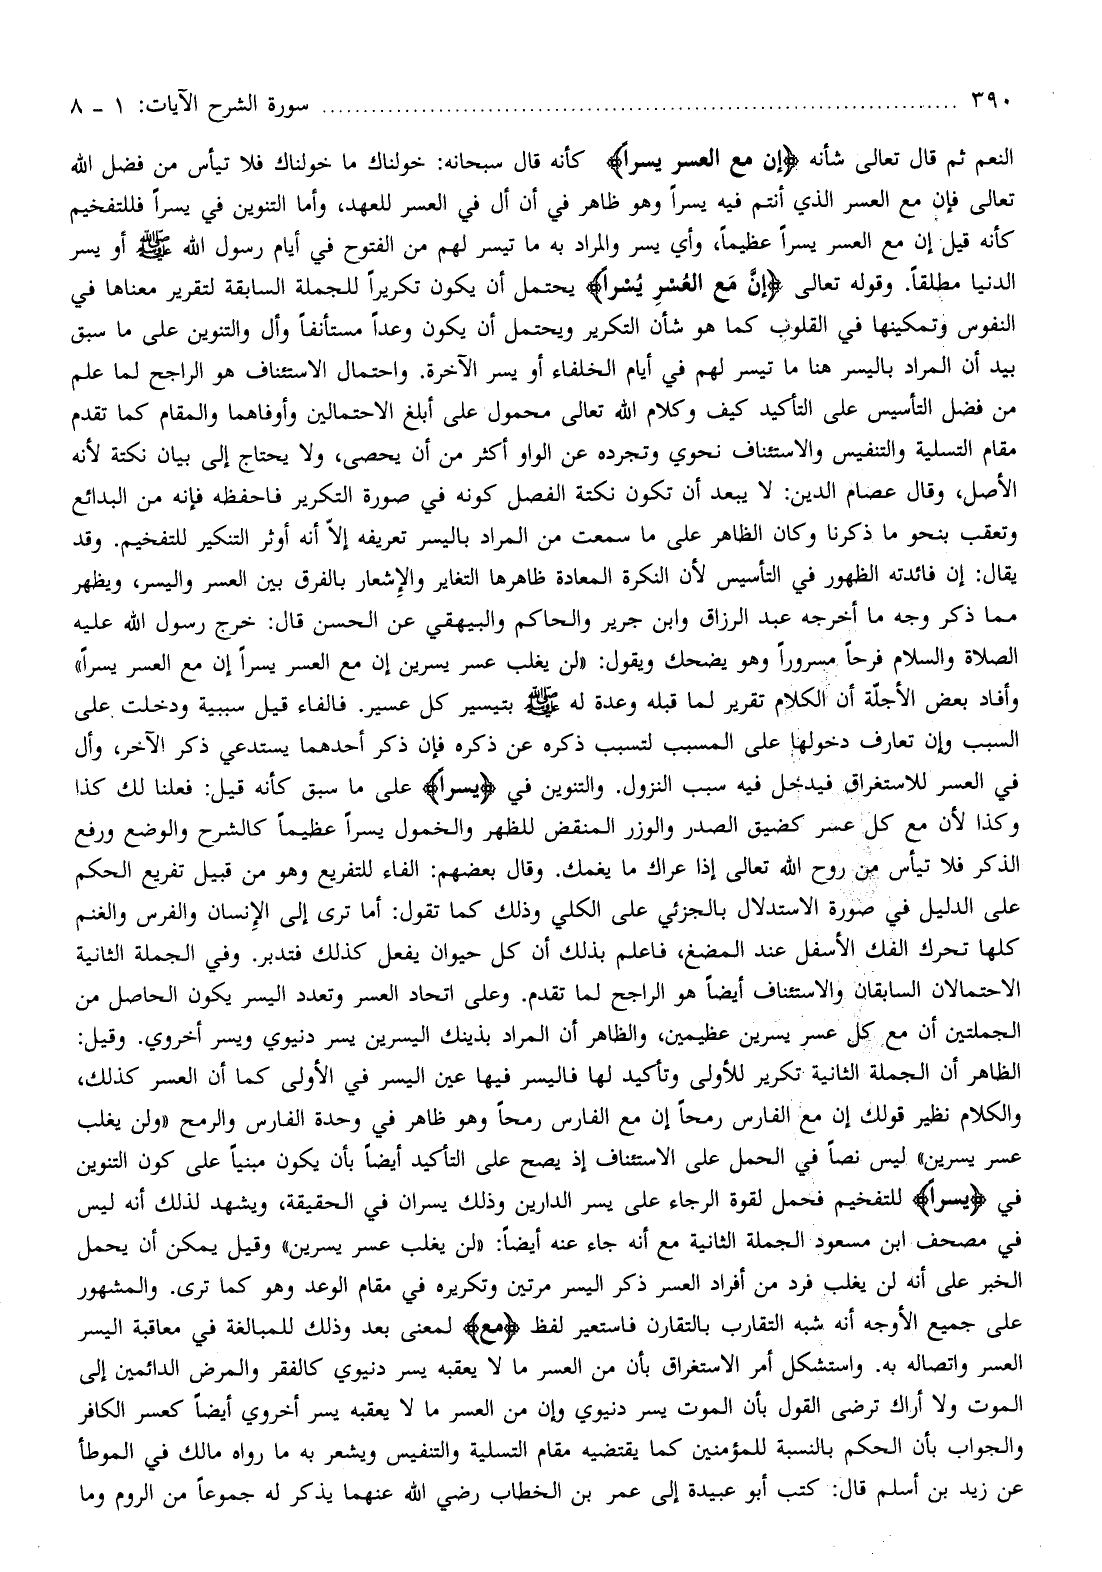 ٣٩٠ ........................................ سورة الشرح الآيات: ١ - ٨
النعم ثم قال تعالى شأنه ﴿إن مع العسر يسراً﴾ كأنه قال سبحانه: خولناك ما خولناك فلا تيأس من فضل الله
تعالى فإن مع العسر الذي أنتم فيه يسراً وهو ظاهر في أن أل في العسر للعهد، وأما التنوين في يسراً فللتفخيم
كأنه قيل إن مع العسر يسراً عظيماً، وأي يسر والمراد به ما تيسر لهم من الفتوح في أيام رسول الله ﷺ أو يسر
الدنيا مطلقاً. وقوله تعالى ﴿إنَّ مَع العُسْرِ يُسْراً﴾ يحتمل أن يكون تكريراً للجملة السابقة لتقرير معناها في
النفوس وتمكينها في القلوب كما هو شأن التكرير ويحتمل أن يكون وعداً مستأنفاً وأل والتنوين على ما سبق
بيد أن المراد باليسر هنا ما تيسر لهم في أيام الخلفاء أو يسر الآخرة. واحتمال الاستئناف هو الراجح لما علم
من فضل التأسيس على التأكيد كيف وكلام الله تعالى محمول على أبلغ الاحتمالين وأوفاهما والمقام كما تقدم
مقام التسلية والتنفيس والاستئناف نحوي وتجرده عن الواو أكثر من أن يحصى، ولا يحتاج إلى بيان نكتة لأنه
الأصل، وقال عصام الدين: لا يبعد أن تكون نكتة الفصل كونه في صورة التكرير فاحفظه فإنه من البدائع
وتعقب بنحو ما ذكرنا وكان الظاهر على ما سمعت من المراد باليسر تعريفه إلاّ أنه أوثر التنكير للتفخيم. وقد
يقال: إن فائدته الظهور في التأسيس لأن النكرة المعادة ظاهرها التغاير والإشعار بالفرق بين العسر واليسر، ويظهر
مما ذكر وجه ما أخرجه عبد الرزاق وابن جرير والحاكم والبيهقي عن الحسن قال: خرج رسول الله عليه
الصلاة والسلام فرحاً مسروراً وهو يضحك ويقول: «لن يغلب عسر يسرين إن مع العسر يسراً إن مع العسر يسراً»
وأفاد بعض الأجلّة أن الكلام تقرير لما قبله وعدة له ﷺ بتيسير كل عسير. فالفاء قيل سببية ودخلت على
السبب وإن تعارف دخولها على المسبب لتسبب ذكره عن ذكره فإن ذكر أحدهما يستدعي ذكر الآخر، وأل
في العسر للاستغراق فيدخل فيه سبب النزول. والتنوين في ﴿يسراً﴾ على ما سبق كأنه قيل: فعلنا لك كذا
وكذا لأن مع كل عسر كضيق الصدر والوزر المنقض للظهر والخمول يسراً عظيماً كالشرح والوضع ورفع
الذكر فلا تيأس من روح الله تعالى إذا عراك ما يغمك. وقال بعضهم: الفاء للتفريع وهو من قبيل تفريع الحكم
على الدليل في صورة الاستدلال بالجزئي على الكلي وذلك كما تقول: أما ترى إلى الإنسان والفرس والغنم
كلها تحرك الفك الأسفل عند المضغ، فاعلم بذلك أن كل حيوان يفعل كذلك فتدبر. وفي الجملة الثانية
الاحتمالان السابقان والاستئناف أيضاً هو الراجح لما تقدم. وعلى اتحاد العسر وتعدد اليسر يكون الحاصل من
الجملتين أن مع كل عسر يسرين عظيمين، والظاهر أن المراد بذينك اليسرين يسر دنيوي ويسر أخروي. وقيل:
الظاهر أن الجملة الثانية تكرير للأولى وتأكيد لها فاليسر فيها عين اليسر في الأولى كما أن العسر كذلك،
والكلام نظير قولك إن مع الفارس رمحاً إن مع الفارس رمحاً وهو ظاهر في وحدة الفارس والرمح «ولن يغلب
عسر يسرين» ليس نصاً في الحمل على الاستئناف إذ يصح على التأكيد أيضاً بأن يكون مبنياً على كون التنوين
في ﴿يسراً﴾ للتفخيم فحمل لقوة الرجاء على يسر الدارين وذلك يسران في الحقيقة، ويشهد لذلك أنه ليس
في مصحف ابن مسعود الجملة الثانية مع أنه جاء عنه أيضاً: «لن يغلب عسر يسرين» وقيل يمكن أن يحمل
الخبر على أنه لن يغلب فرد من أفراد العسر ذكر اليسر مرتين وتكريره في مقام الوعد وهو كما ترى. والمشهور
على جميع الأوجه أنه شبه التقارب بالتقارن فاستعير لفظ ﴿مع﴾ لمعنى بعد وذلك للمبالغة في معاقبة اليسر
العسر واتصاله به. واستشكل أمر الاستغراق بأن من العسر ما لا يعقبه يسر دنيوي كالفقر والمرض الدائمين إلى
الموت ولا أراك ترضى القول بأن الموت يسر دنيوي وإن من العسر ما لا يعقبه يسر أخروي أيضاً كعسر الكافر
والجواب بأن الحكم بالنسبة للمؤمنين كما يقتضيه مقام التسلية والتنفيس ويشعر به ما رواه مالك في الموطأ
عن زيد بن أسلم قال: كتب أبو عبيدة إلى عمر بن الخطاب رضي الله عنهما يذكر له جموعاً من الروم وما